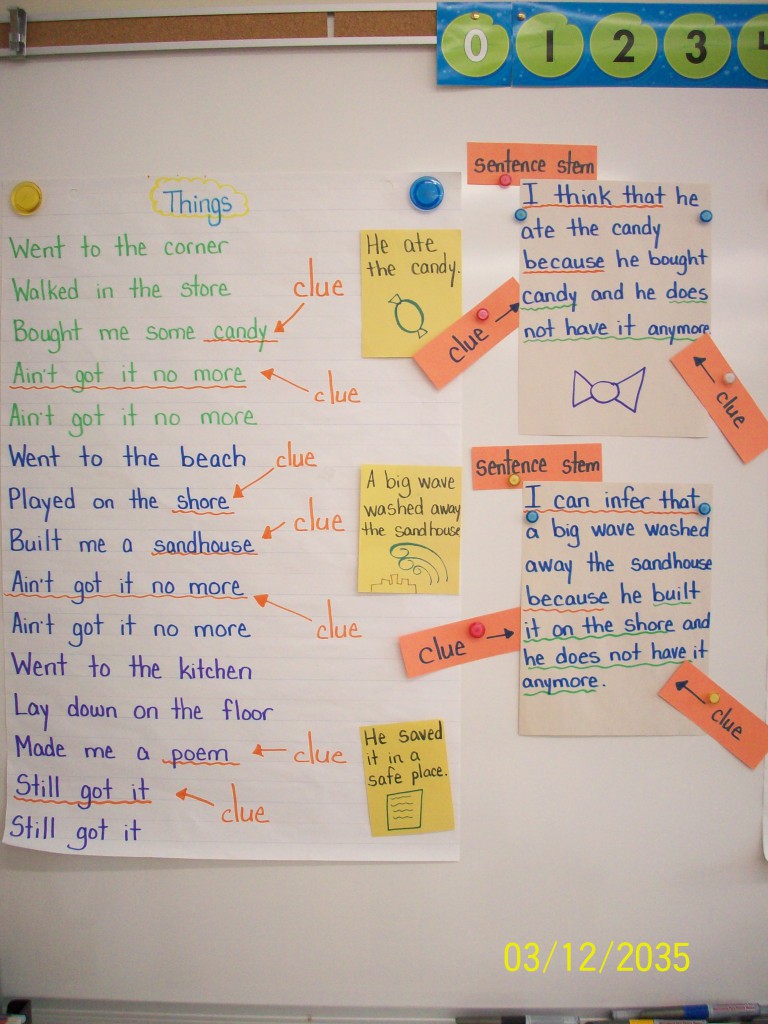 0 1 2 3 4
Things
Went to the corner
Walked in the store
Bought me some candy
clue
Ain't got it no more
clue
Ain't got it no more
Went to the beach
clue
Played on the shore
Built me a sandhouse
clue
Ain't got it no more
Ain't got it no more
clue
Went to the kitchen
Lay down on the floor
Made me a poem
clue
Still got it
clue
Still got it
He ate
the candy.
A big wave
washed away
the sandhouse
He saved
it in a
safe place.
sentence stem
I think that he
ate the candy
because he bought
candy and he does
not have it anymore
clue
clue
sentence stem
I can infer that
a big wave washed
away the sandhouse
because he built
it on the shore and
he does not have it
anymore.
clue
clue
03/12/2035